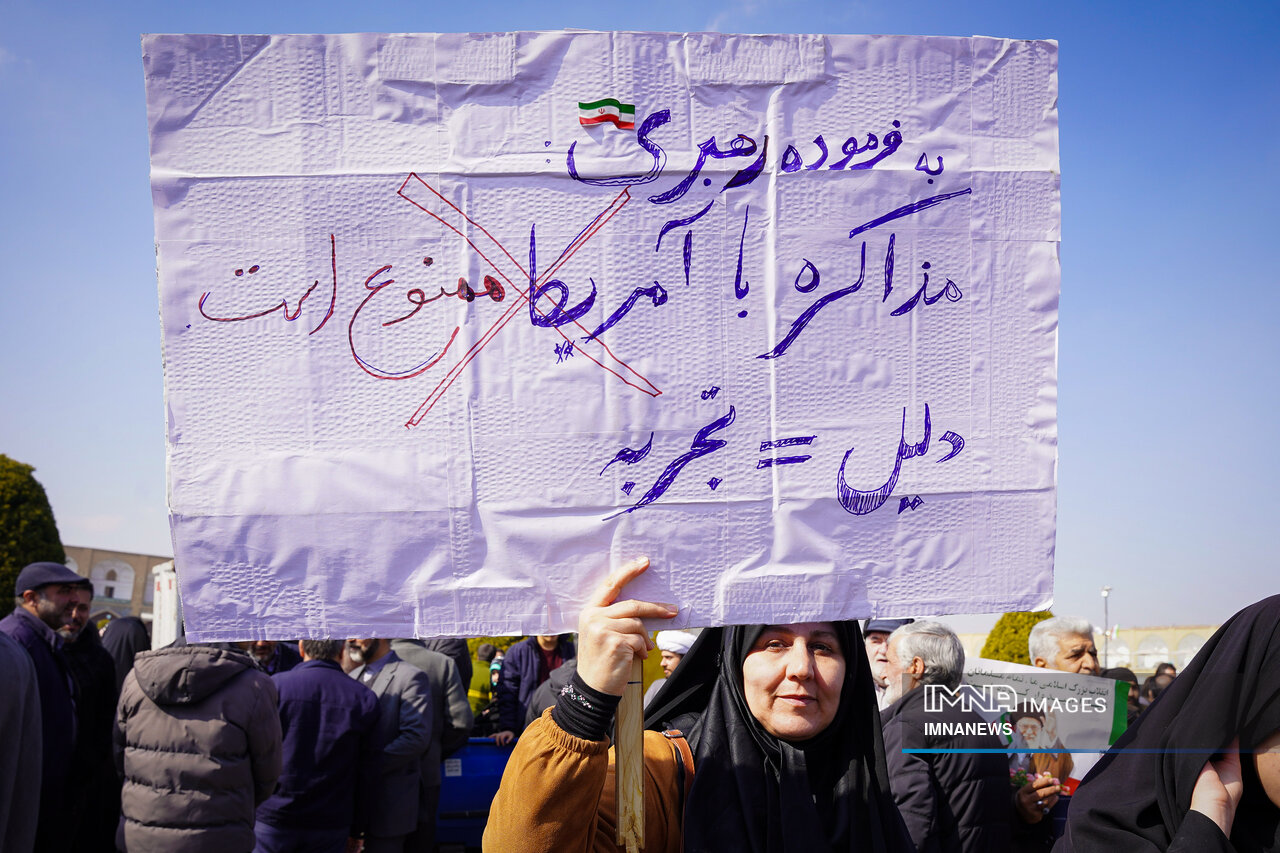 به فرموده رهبری :
مذاکره با آمریکا ممنوع است.
دلیل = تجربه
IMNA IMAGES
IMNANEWS
انقلاب بزرگ اسلامی